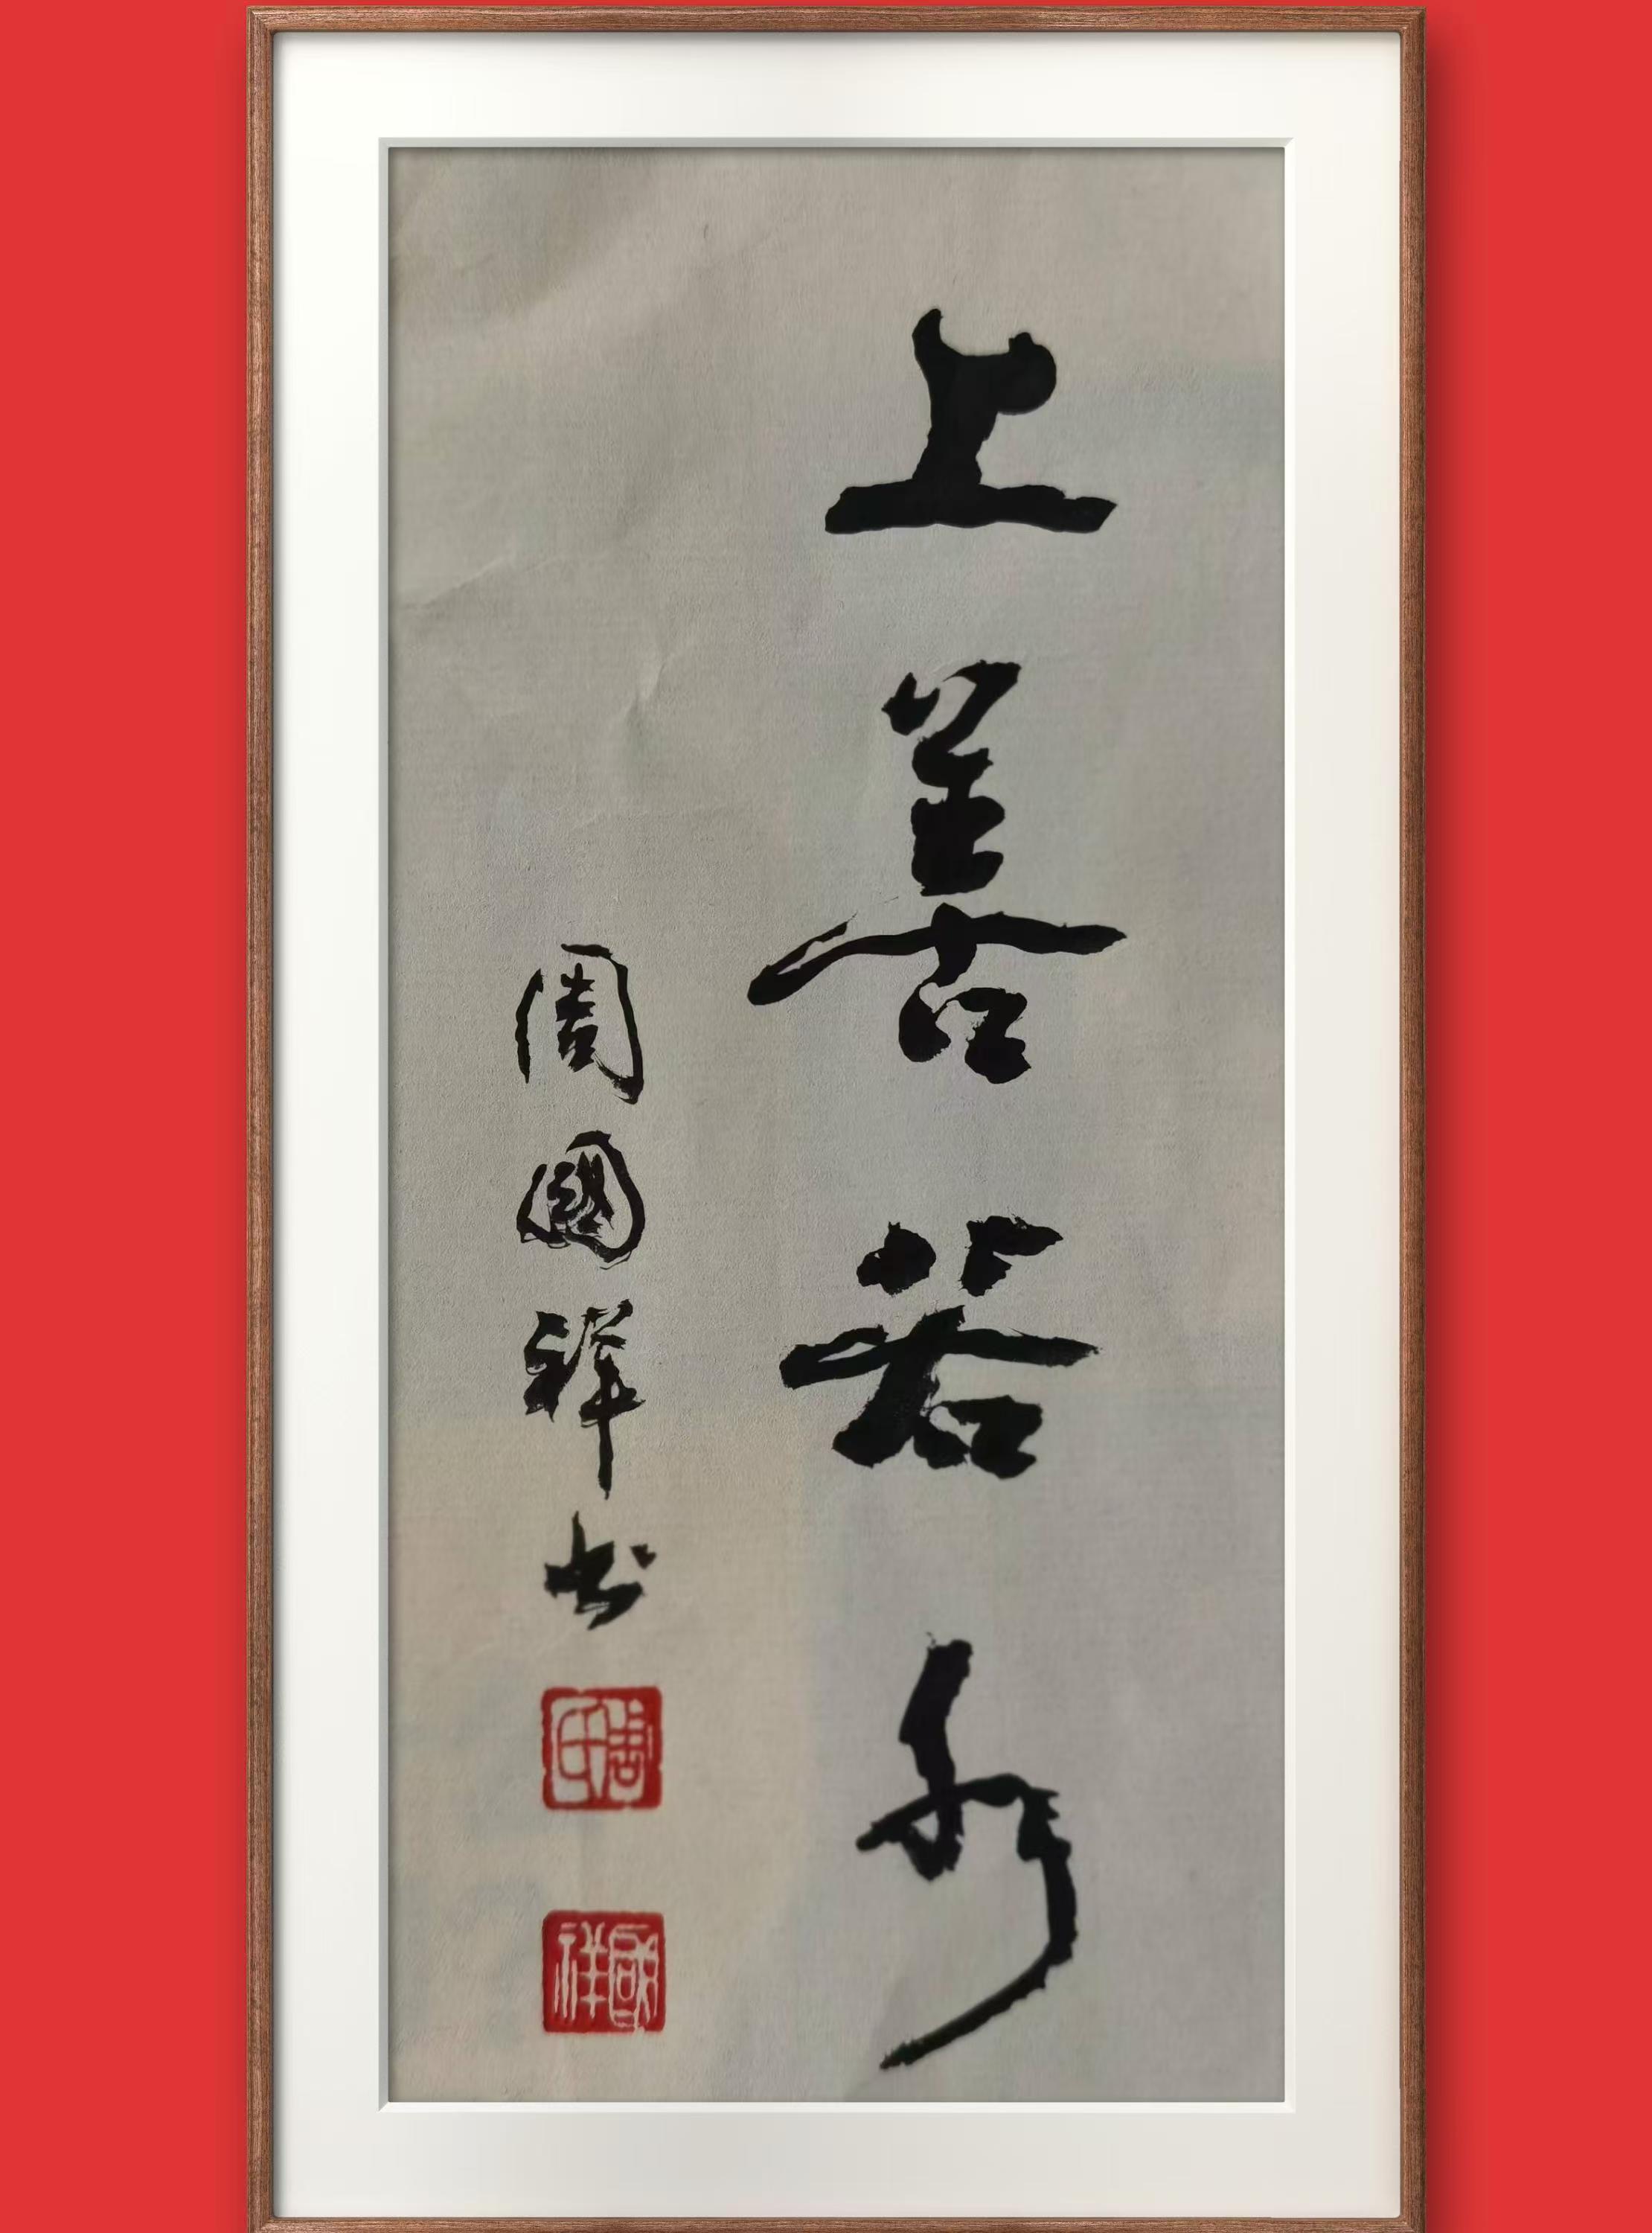 上善若水
周國祥书
周氏
國祥